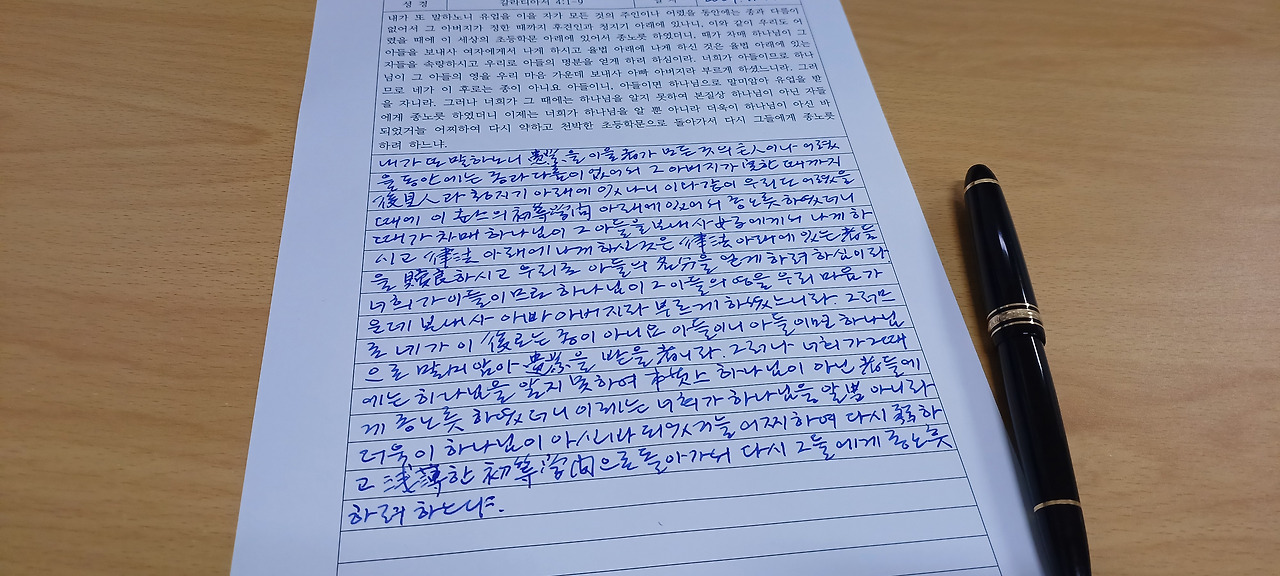 성 경 갈라디아서 4:1-9
내가 또 말하노니 유업을 이을 자가 모든 것의 주인이나 어렸을 동안에는 종과 다름이
없어서 그 아버지가 정한 때까지 후견인과 청지기 아래에 있나니, 이와 같이 우리도 어
렸을 때에 이 세상의 초등학문 아래에 있어서 종노릇 하였더니, 때가 차매 하나님이 그
아들을 보내사 여자에게서 나게 하시고 율법 아래에 나게 하신 것은 율법 아래에 있는
자들을 속량하시고 우리로 아들의 명분을 얻게 하려 하심이라. 너희가 아들이므로 하나
님이 그 아들의 영을 우리 마음 가운데 보내사 아빠 아버지라 부르게 하셨느니라. 그러
므로 네가 이 후로는 종이 아니요 아들이니, 아들이면 하나님으로 말미암아 유업을 받
을 자니라. 그러나 너희가 그 때에는 하나님을 알지 못하여 본질상 하나님이 아닌 자들
에게 종노릇 하였더니 이제는 너희가 하나님을 알 뿐 아니라 더욱이 하나님이 아신 바
되었거늘 어찌하여 다시 약하고 천박한 초등학문으로 돌아가서 다시 그들에게 종노릇
하려 하느냐.
내가 또 말하노니 遺業을 이을 者가 모든 것의 主人이나 어렸
을 동안에는 종과 다름이 없어서 그 아버지가 定한 때까지
後見人과 청지기 아래에 있나니 이와같이 우리도 어렸을
때에 이 世上의 初等學問 아래에 있어서 종노릇 하였더니
때가 차매 하나님이 그 아들을 보내사 女子에게서 나게 하
시고 律法 아래에 나게 하신 것은 律法 아래에 있는 者들
을 贖良하시고 우리로 아들의 名分을 얻게 하려 하심이라
너희가 아들이므로 하나님이 그 아들의 영을 우리 마음 가
운데 보내사 아빠 아버지라 부르게 하셨느니라. 그러므
로 네가 이 後로는 종이 아니요 아들이니 아들이면 하나님
으로 말미암아 遺業을 받을 者니라. 그러나 너희가 그때
에는 하나님을 알지 못하여 本質上 하나님이 아닌 者들에
게 종노릇 하였더니 이제는 너희가 하나님을 알뿐 아니라
더욱이 하나님이 아신바 되었거늘 어찌하여 다시 弱하
고 淺薄한 初等學問으로 돌아가서 다시 그들에게 종노릇
하려 하느냐.